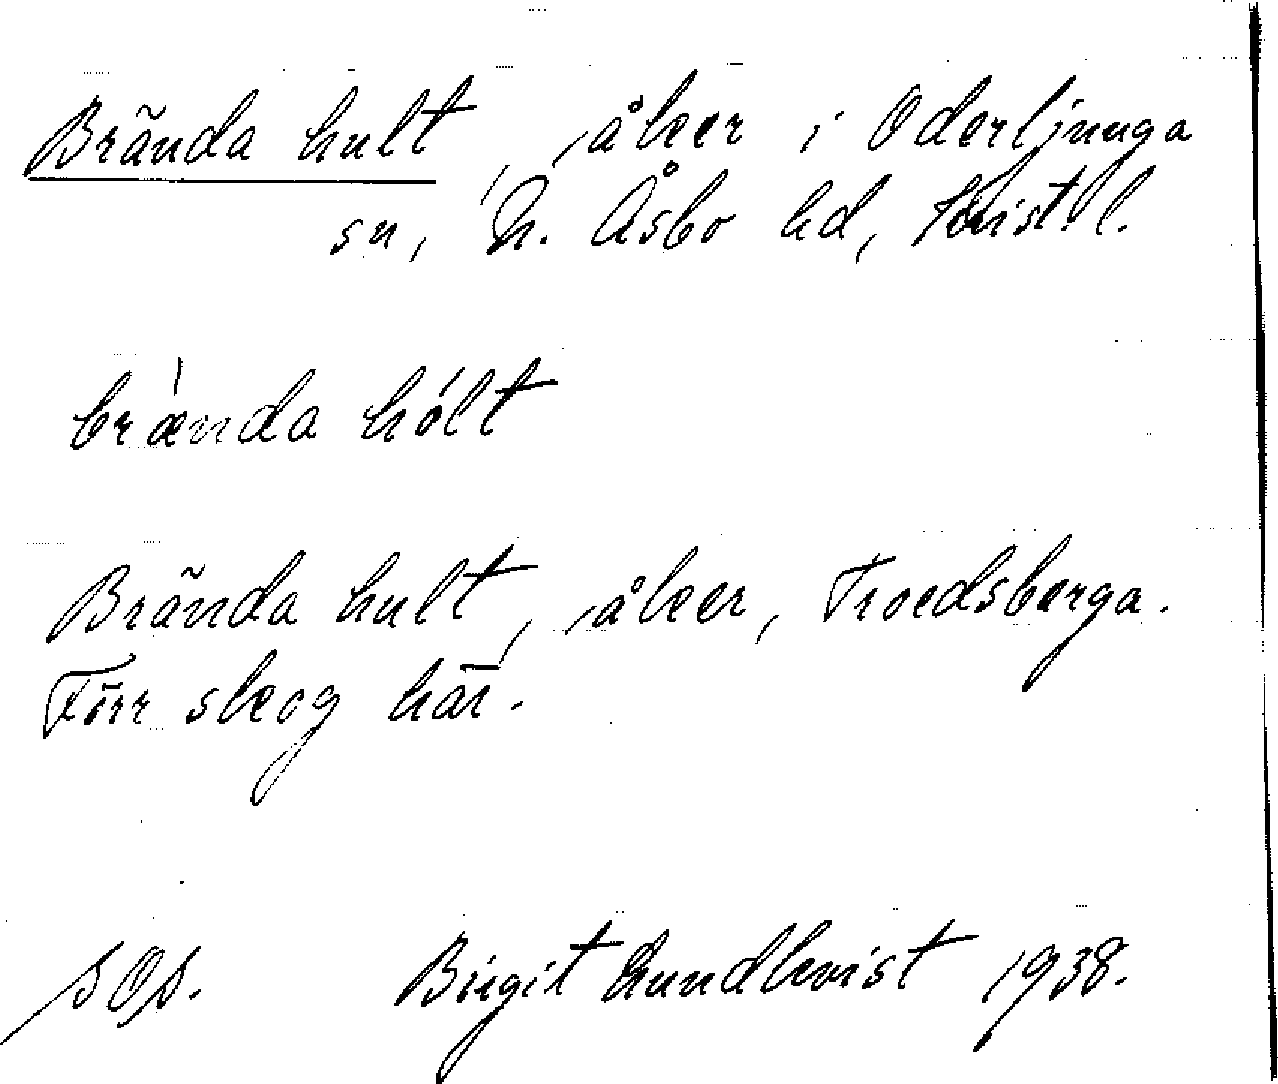 Brända hult, åker i Oderljunga
sn, N. Åsbo hd, Kristl.
brænda hólt
Brända hult, åker, Troedsberga.
Förr skog här.
SOS. Birgit Lundkvist 1938.